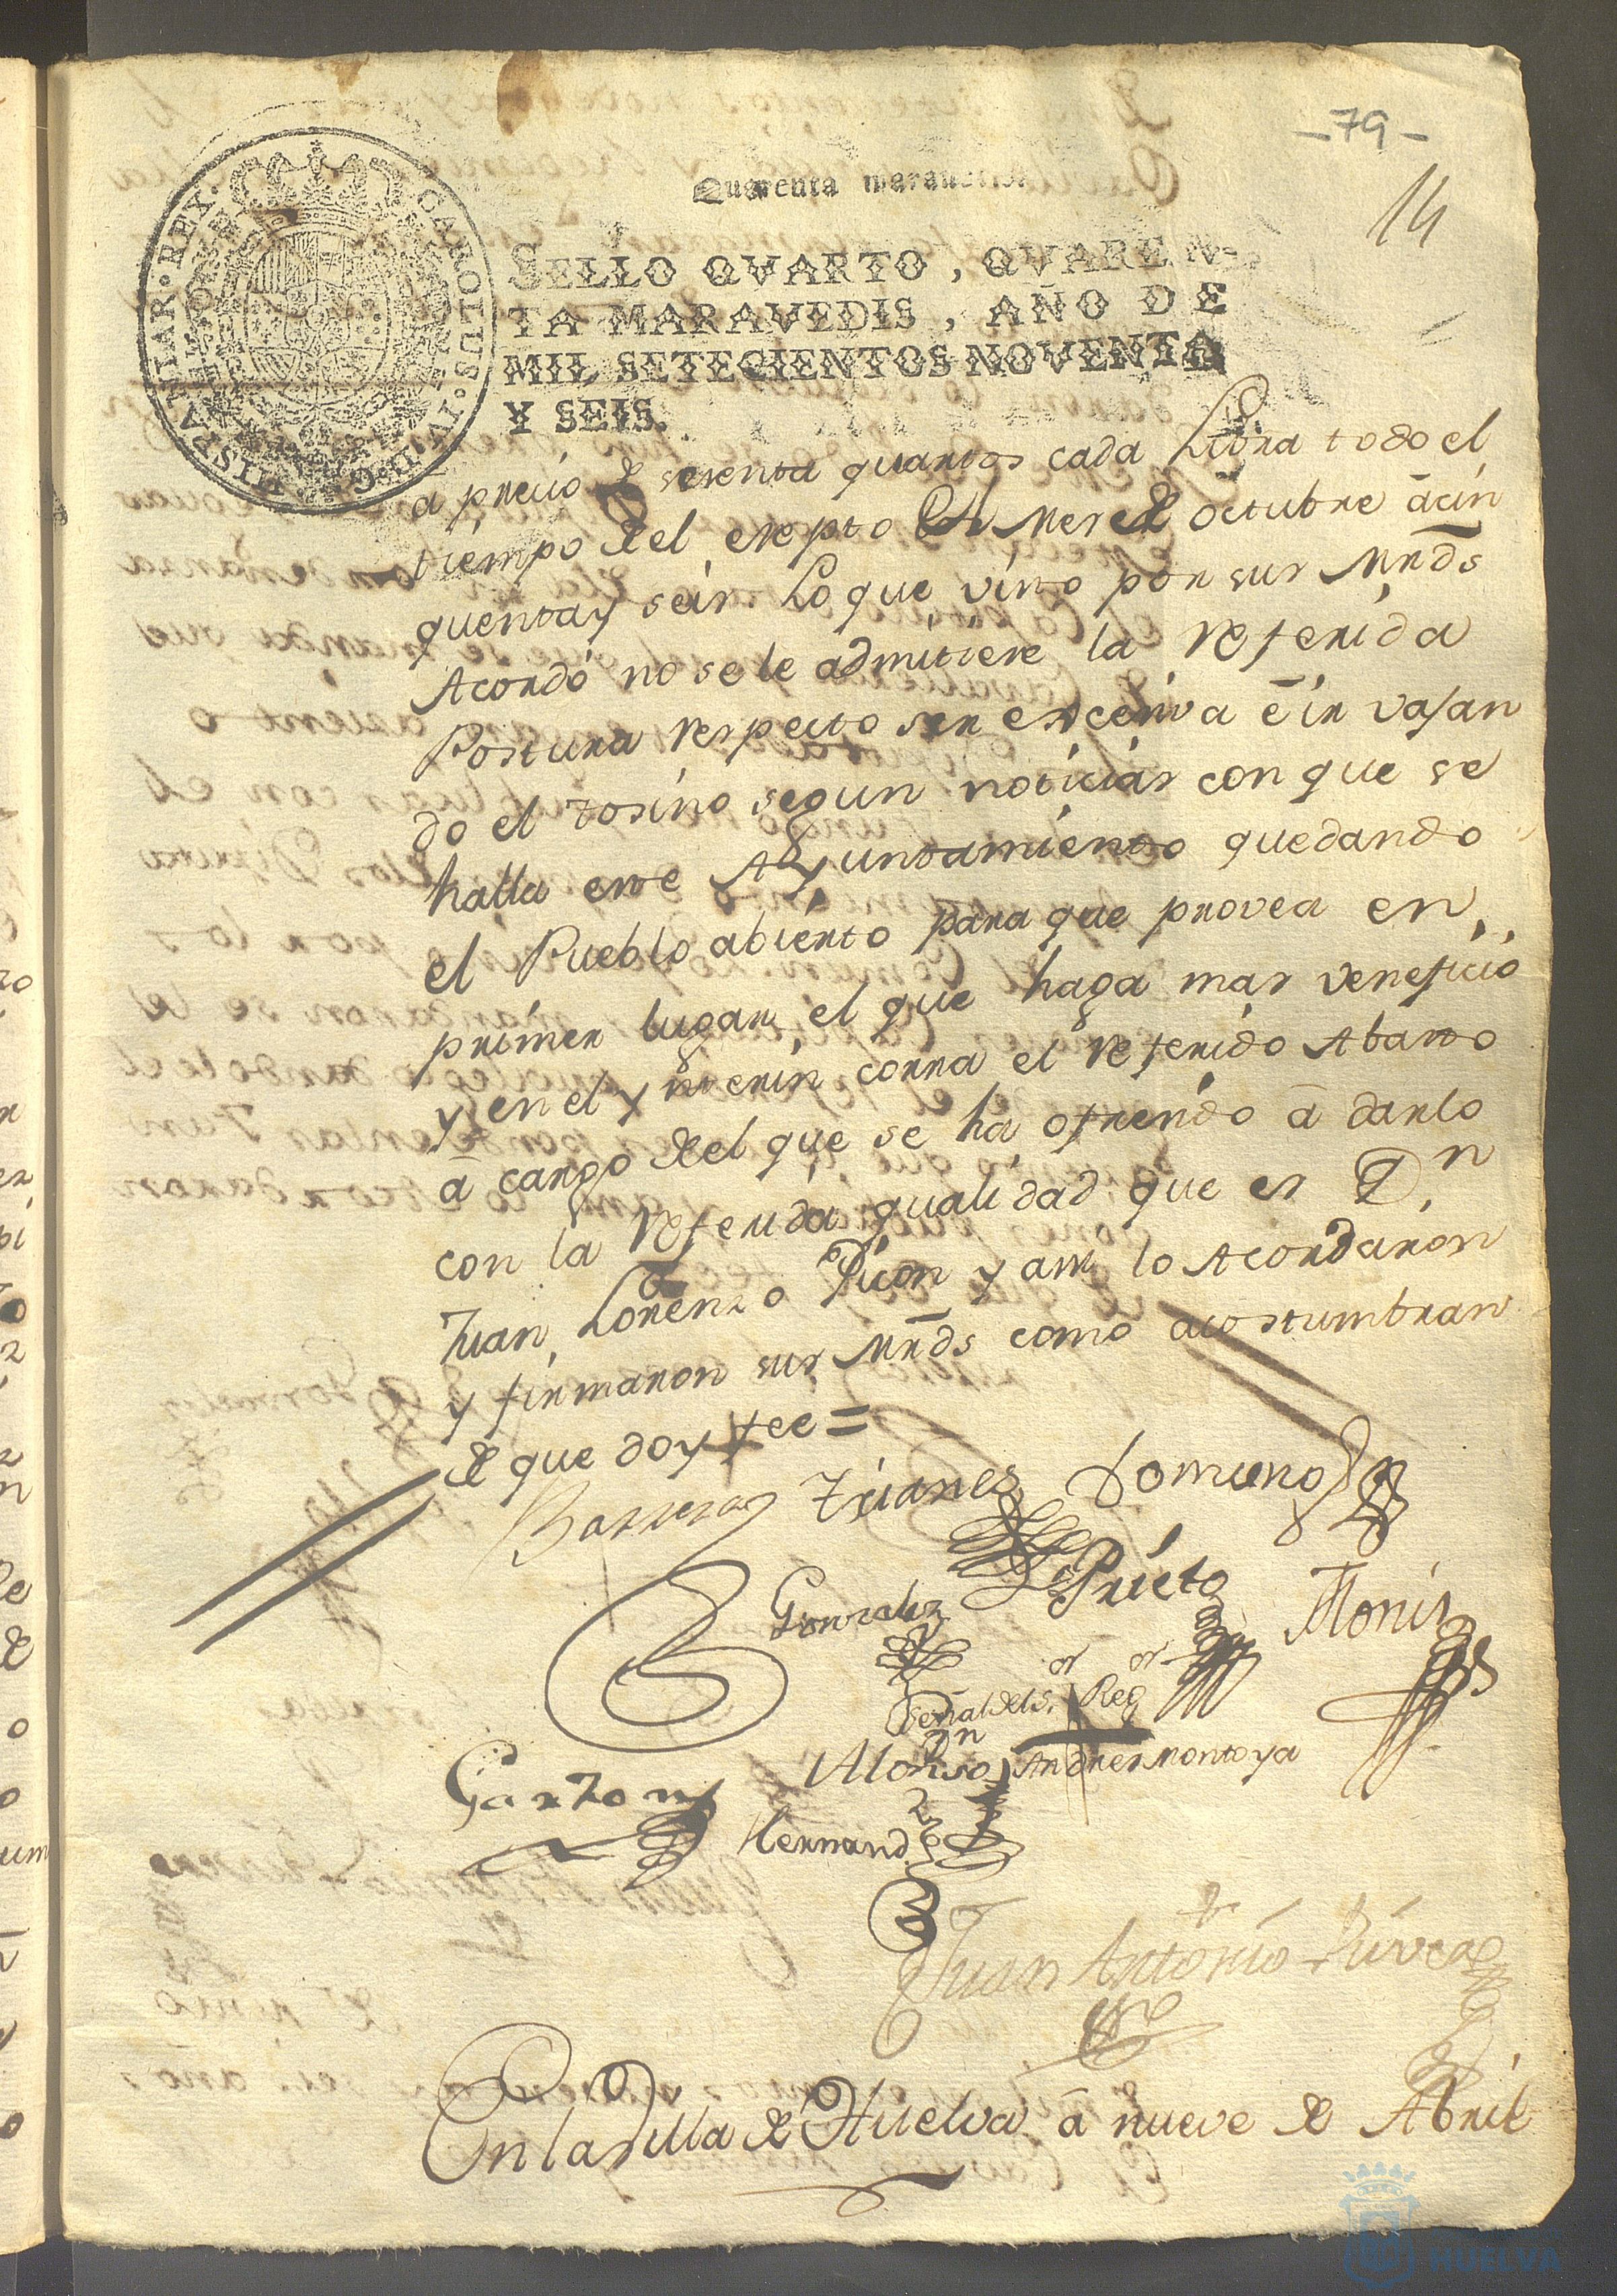 -79-
14
Quarenta maravedis.
CAROLUS IV. D.G. HISPANIAR. REX.
SELLO QVARTO, QVAREN-
TA MARAVEDIS, AÑO DE
MIL SETECIENTOS NOVENTA
Y SEIS.
a precio de sesenta quartos cada Libra todo el
tiempo del exepto el mes de octubre ā cin
quenta y seis Lo que visto por sus Mrds
Acordó no se le admitiese la referida
Postura respecto ser excesiva ē ir vajan
do el tosino segun noticias con que se
halla este Ayuntamiento quedando
el Pueblo abierto para que provea en
primer lugar, el que haga mas veneficio
y en el ynterin corra el referido Abasto
ā cargo del que se há ofresido ā darlo
con la referida qualidad que es Dn
Juan Lorenzo Picon y assi lo Acordaron
y firmaron sus Mrds como acostumbran
de que doy fee =
Barrera Trianes Romero
Gonzalez Prieto Monis
Señal del Sor Regor
Garzon Alonso Dn Andres Montoya
Hernandz
Juan Antonio
En la Villa de Huelva ā nueve de Abril
HUELVA